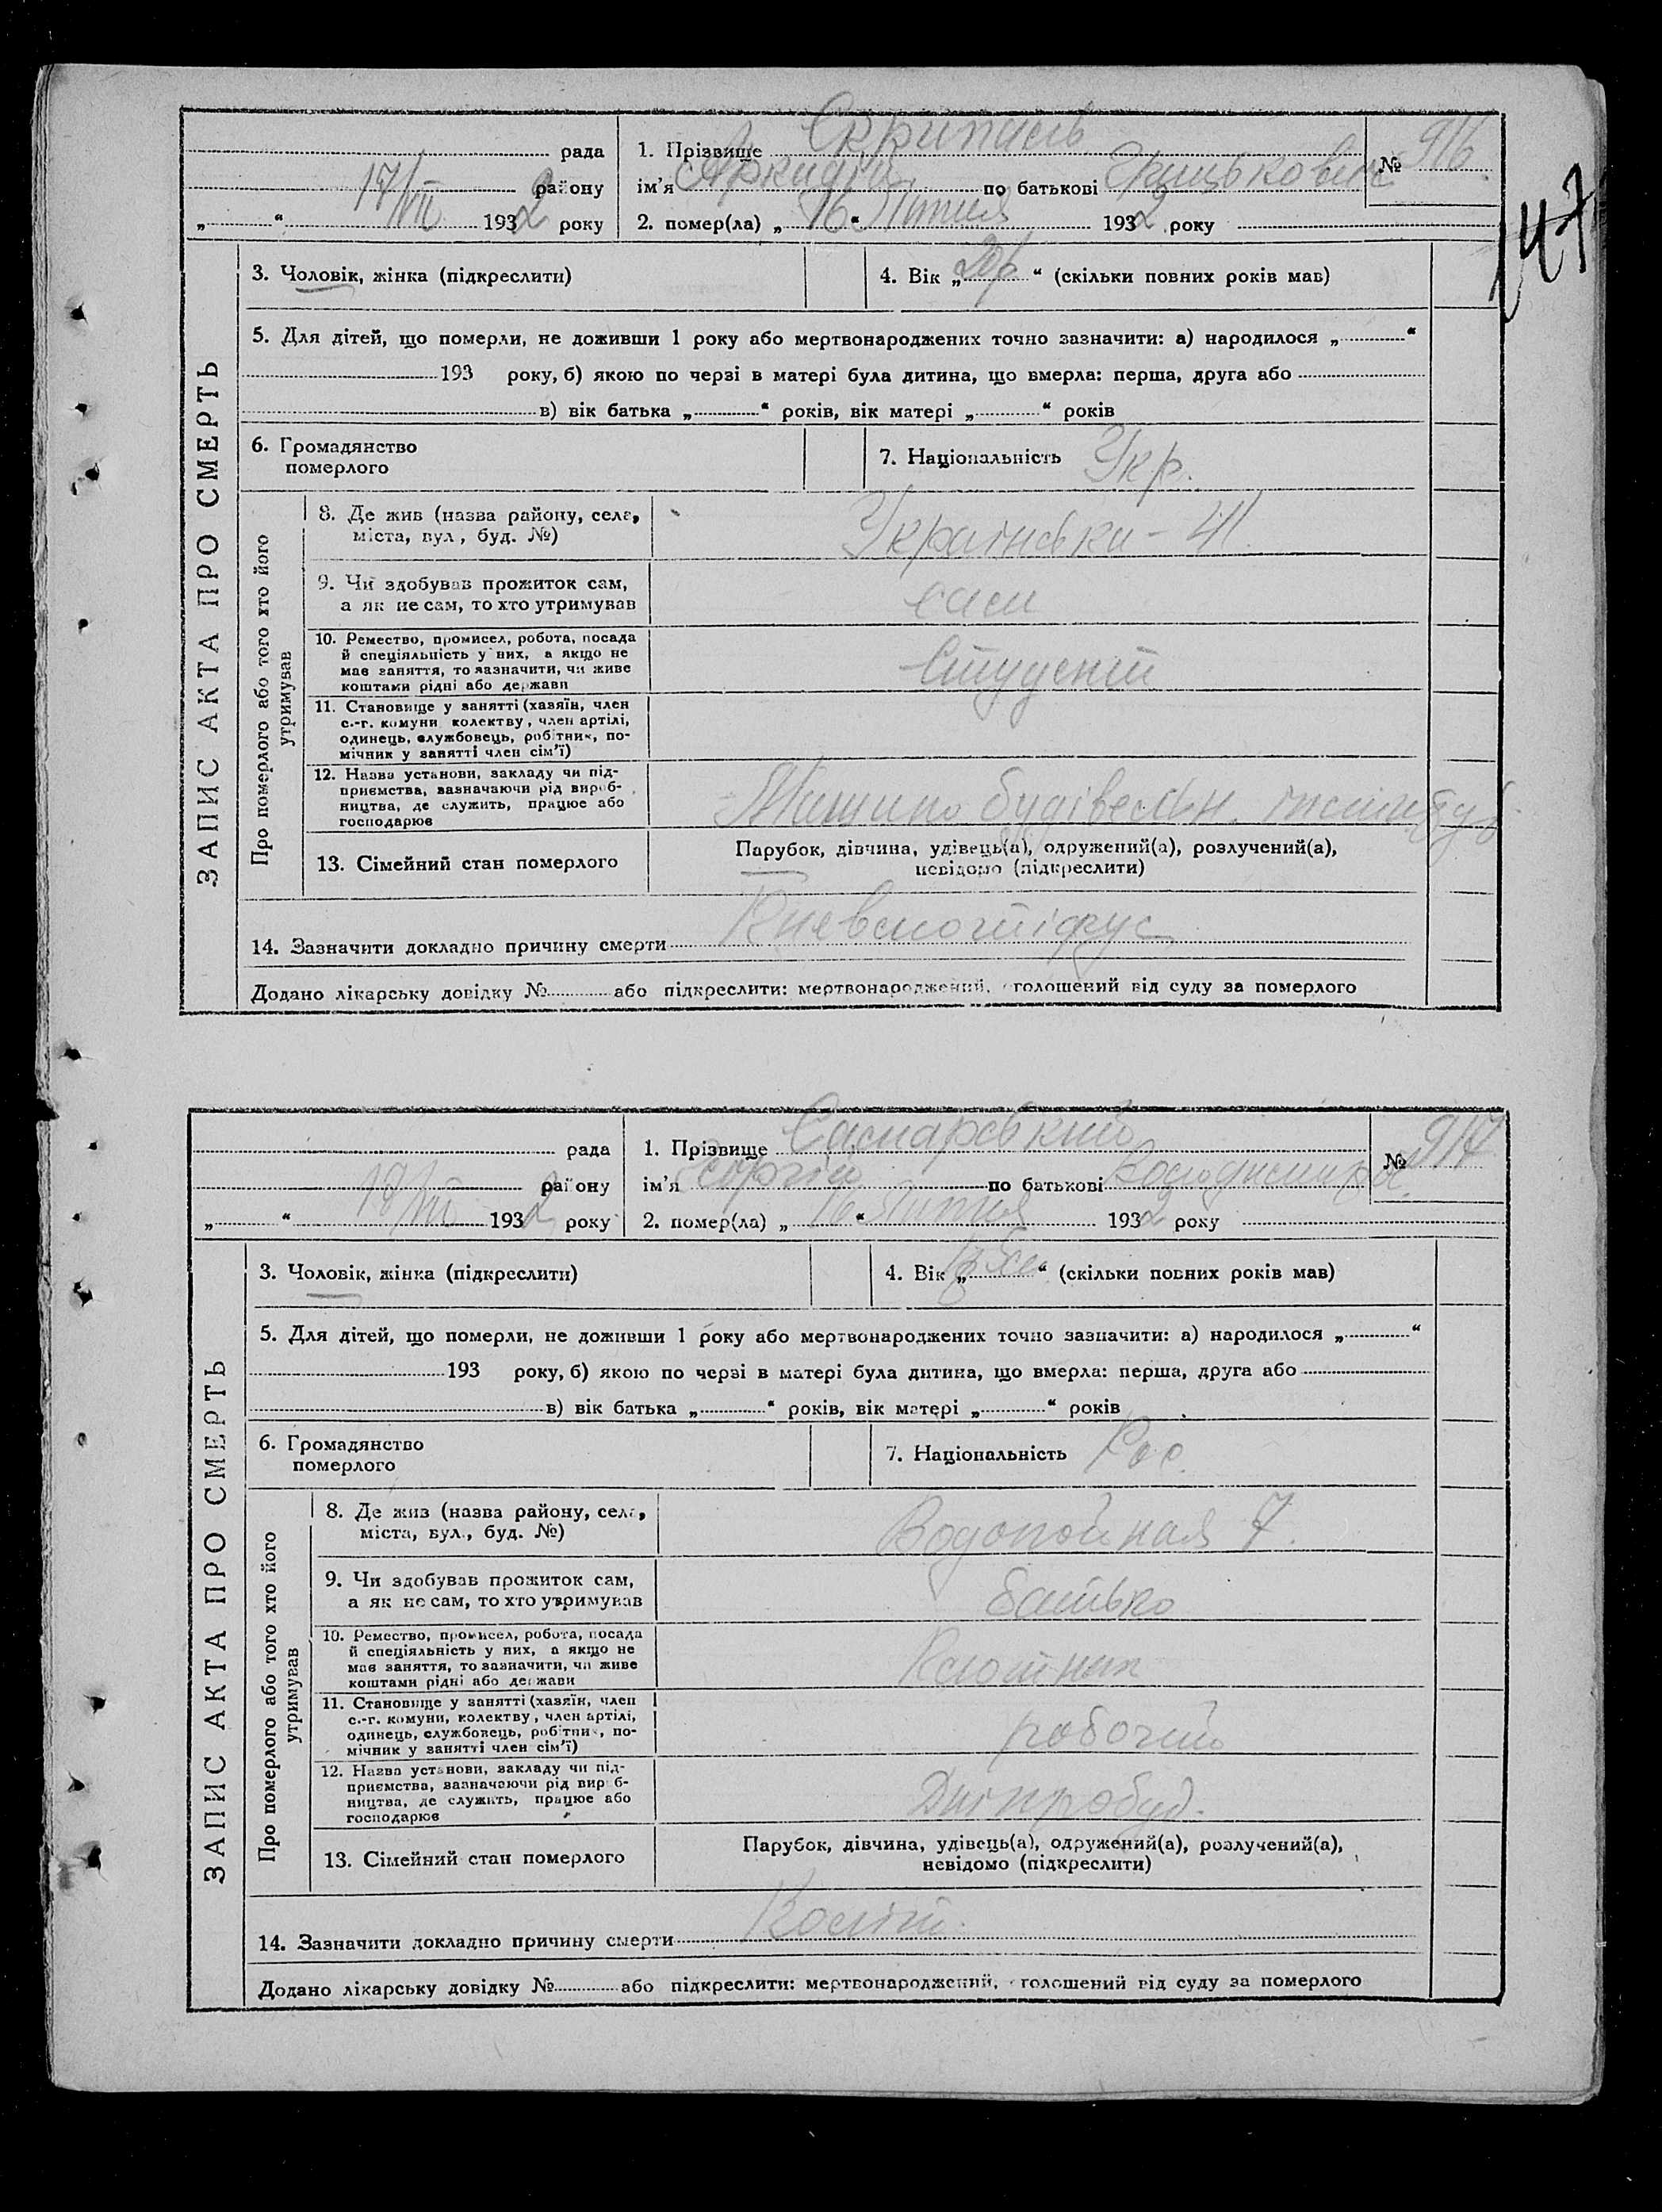 147
ЗАПИС АКТА ПРО СМЕРТЬ
рада
17/VII району
„ “ 1932 року
1. Прізвище Скрипаль
ім’я Аркадій по батькові Грицькович
2. помер(ла) „ 16 “ Липня 1932 року
№ 916
3. Чоловік, жінка (підкреслити)
4. Вік „ 20р “ (скільки повних років мав)
5. Для дітей, що померли, не доживши 1 року або мертвонароджених точно зазначити: а) народилося „ “
193 року, б) якою по черзі в матері була дитина, що вмерла: перша, друга або
в) вік батька „ “ років, вік матері „ “ років
6. Громадянство
померлого
7. Національність Укр.
Про померлого або того хто його
утримував
8. Де жив (назва району, села,
міста, вул., буд. №)
Українська - 41
9. Чи здобував прожиток сам,
а як не сам, то хто утримував
сам
10. Ремество, промисел, робота, посада
й спеціяльність у них, а якщо не
мав заняття, то зазначити, чи живе
коштами рідні або держави
Студент
11. Становище у занятті (хазяїн, член
с.-г. комуни колектву, член артілі,
одинець, службовець, робітник, по-
мічник у занятті член сім’ї)
12. Назва установи, закладу чи під-
приємства, зазначаючи рід вироб-
ництва, де служить, працює або
господарює
Машино будівельн. інститут
13. Сімейний стан померлого
Парубок, дівчина, удівець(а), одружений(а), розлучений(а),
невідомо (підкреслити)
14. Зазначити докладно причину смерти
Додано лікарську довідку № або підкреслити: мертвонароджений, оголошений від суду за померлого
ЗАПИС АКТА ПРО СМЕРТЬ
рада
району
„ “ 1932 року
1. Прізвище
ім’я Сергій по батькові
2. помер(ла) „ 16 “ Липня 1932 року
№ 917
3. Чоловік, жінка (підкреслити)
4. Вік „ “ (скільки повних років мав)
5. Для дітей, що померли, не доживши 1 року або мертвонароджених точно зазначити: а) народилося „ “
193 року, б) якою по черзі в матері була дитина, що вмерла: перша, друга або
в) вік батька „ “ років, вік матері „ “ років
6. Громадянство
померлого
7. Національність Рос.
Про померлого або того хто його
утримував
8. Де жив (назва району, села,
міста, вул., буд. №)
Водопойная 7.
9. Чи здобував прожиток сам,
а як не сам, то хто утримував
батько
10. Ремество, промисел, робота, посада
й спеціяльність у них, а якщо не
мав заняття, то зазначити, чи живе
коштами рідні або держави
11. Становище у занятті (хазяїн, член
с.-г. комуни, колектву, член артілі,
одинець, службовець, робітник, по-
мічник у занятті член сім’ї)
робочий
12. Назва установи, закладу чи під-
приємства, зазначаючи рід вироб-
ництва, де служить, працює або
господарює
Дніпробуд.
13. Сімейний стан померлого
Парубок, дівчина, удівець(а), одружений(а), розлучений(а),
невідомо (підкреслити)
14. Зазначити докладно причину смерти Коліт.
Додано лікарську довідку № або підкреслити: мертвонароджений, оголошений від суду за померлого